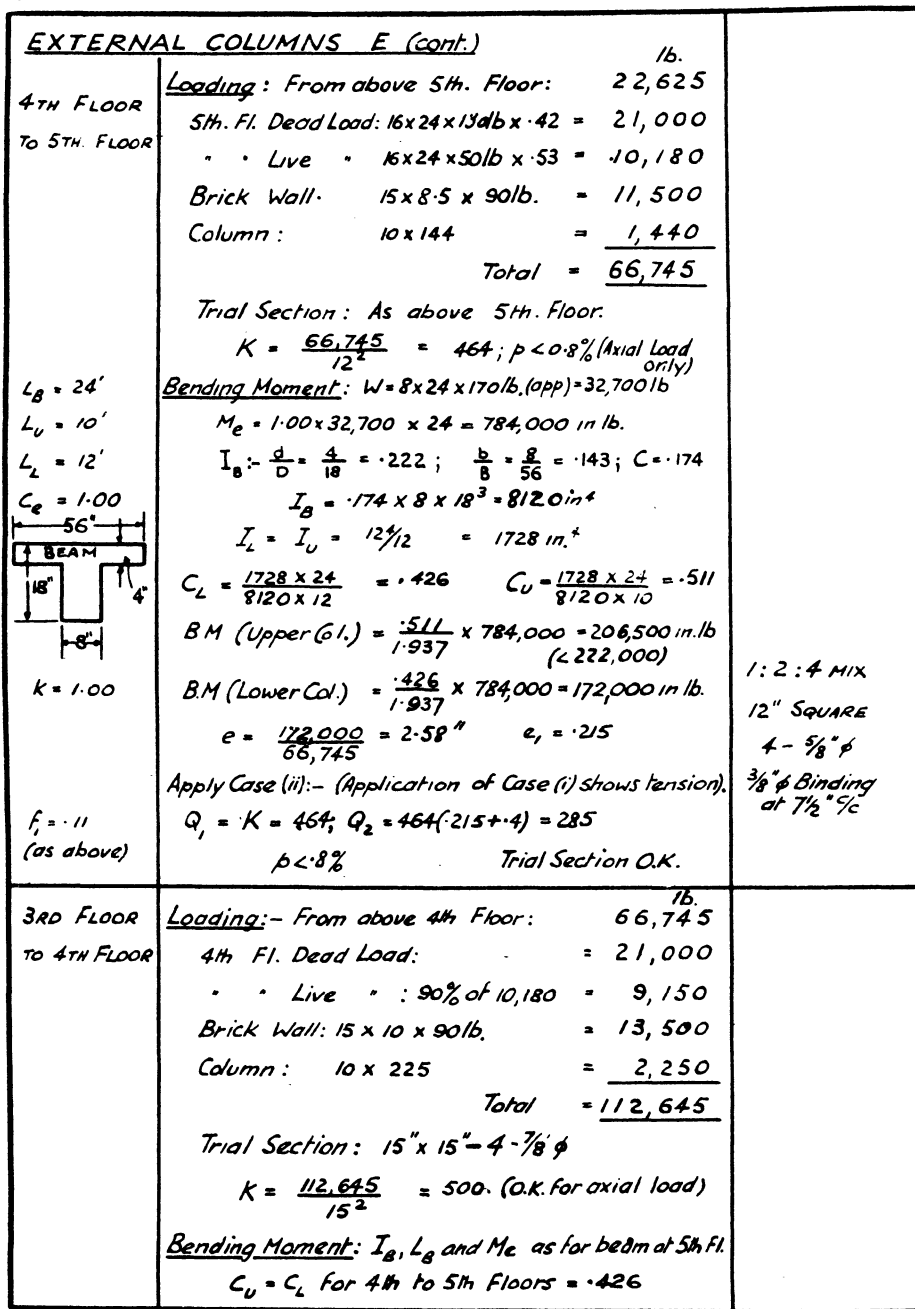 EXTERNAL COLUMNS E (cont.)
4TH FLOOR
TO 5TH. FLOOR
lb.
Loading: From above 5th. Floor: 22,625
5th. Fl. Dead Load: 16x24x130lb x ·42 = 21,000
" " Live " 16x24x50lb x ·53 = 10,180
Brick Wall. 15x8·5 x 90lb. = 11,500
Column: 10x144 = 1,440
Total = 66,745
Trial Section: As above 5th. Floor.
K = 66,745/12² = 464; p < 0·8% (Axial Load only)
L_B = 24'
L_U = 10'
L_L = 12'
C_e = 1·00
56"
BEAM
18"
4"
8"
K = 1·00
f₁ = ·11
(as above)
Bending Moment: W = 8x24x170lb.(app) = 32,700 lb
M_e = 1·00 x 32,700 x 24 = 784,000 in lb.
I_B:- d/D = 4/18 = ·222; b/B = 8/56 = ·143; C = ·174
I_B = ·174 x 8 x 18³ = 8120 in⁴
I_L = I_U = 12⁴/12 = 1728 in.⁴
C_L = 1728 x 24/8120 x 12 = ·426 C_U = 1728 x 24/8120 x 10 = ·511
B M (Upper Col.) = ·511/1·937 x 784,000 = 206,500 in.lb
(< 222,000)
B.M (Lower Col.) = ·426/1·937 x 784,000 = 172,000 in lb.
e = 172,000/66,745 = 2·58" e₁ = ·215
Apply Case (ii):- (Application of Case (i) shows tension).
Q₁ = K = 464; Q₂ = 464(·215+·4) = 285
p < ·8% Trial Section O.K.
1:2:4 MIX
12" SQUARE
4 - 5/8" φ
3/8" φ Binding
at 7½" c/c
3RD FLOOR
TO 4TH FLOOR
lb.
Loading:- From above 4th Floor: 66,745
4th Fl. Dead Load: = 21,000
" " Live " : 90% of 10,180 = 9,150
Brick Wall: 15 x 10 x 90lb. = 13,500
Column: 10 x 225 = 2,250
Total = 112,645
Trial Section: 15" x 15" - 4 - 7/8 φ
K = 112,645/15² = 500. (O.K. for axial load)
Bending Moment: I_B, L_B and Me as for beam at 5th Fl.
C_U = C_L for 4th to 5th Floors = ·426